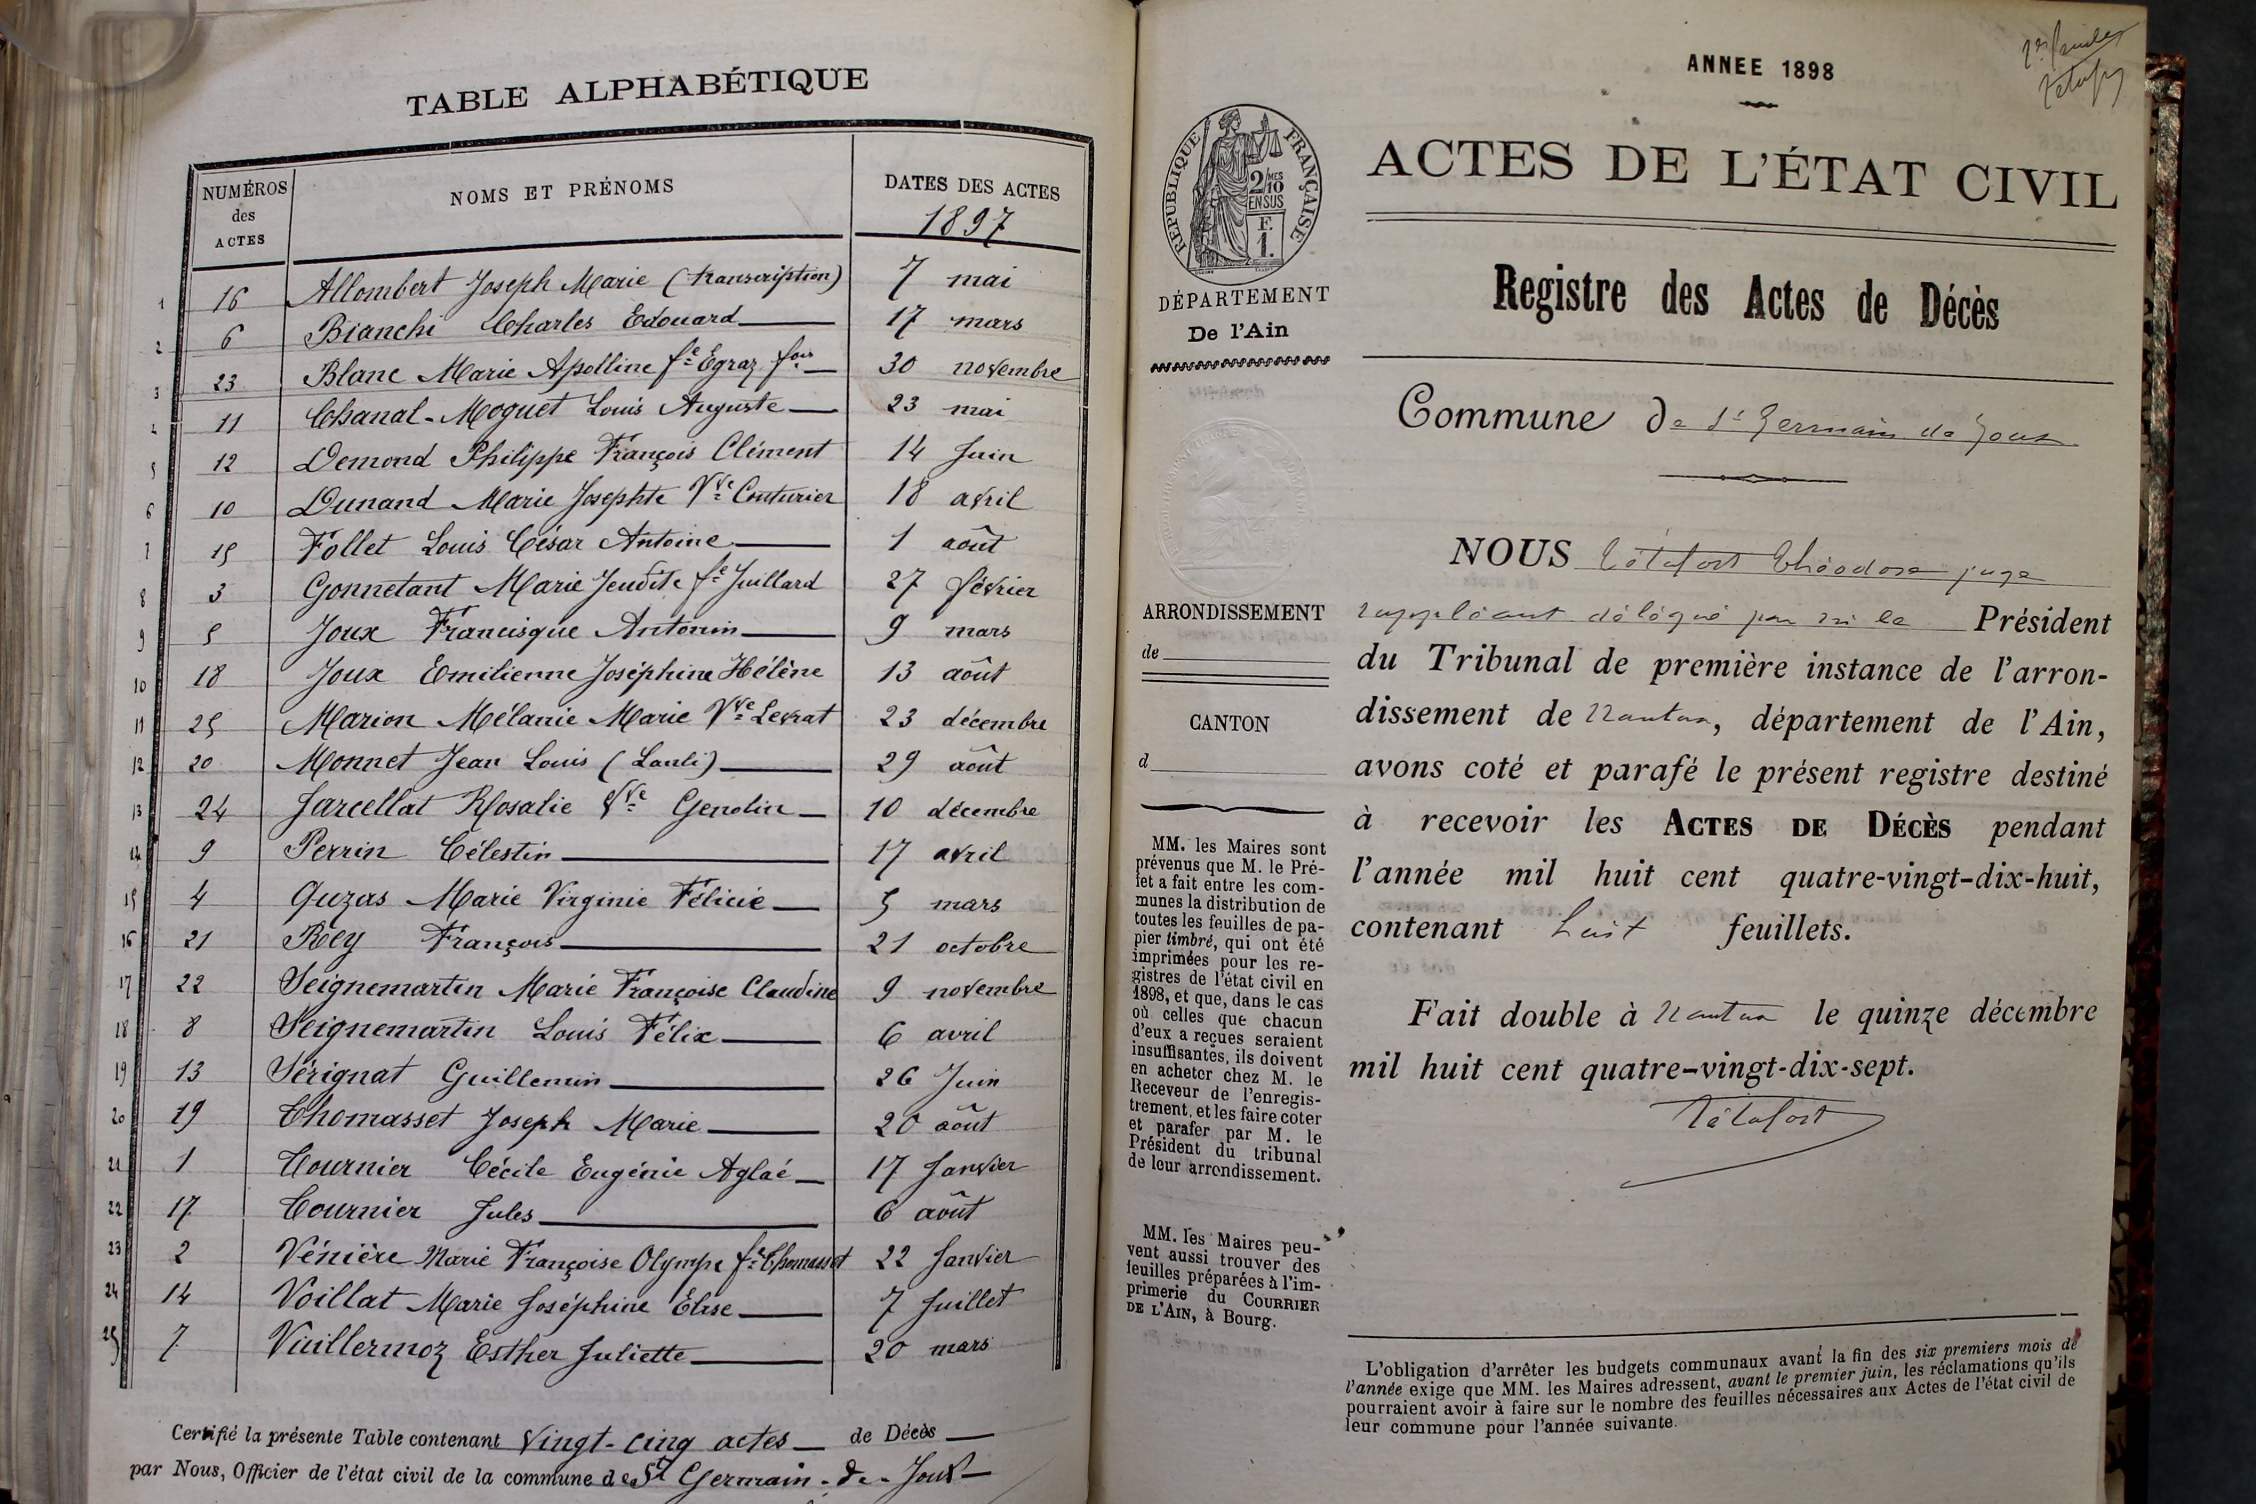 TABLE ALPHABÉTIQUE
NUMÉROS des ACTES
NOMS ET PRÉNOMS
DATES DES ACTES
1897
1 16 Allombert Joseph Marie (transcription) 7 mai
2 6 Bianchi Charles Edouard 17 mars
3 23 Blanc Marie Apolline fe Egraz fois 30 novembre
4 11 Chanal-Moguet Louis Auguste 23 mai
5 12 Demond Philippe François Clément 14 Juin
6 10 Dunand Marie Josephte Vve Couturier 18 avril
7 15 Follet Louis César Antoine 1 août
8 3 Gonnetant Marie Jeudite fe Juillard 27 février
9 5 Joux Francisque Antonin 9 mars
10 18 Joux Emilienne Joséphine Hélène 13 août
11 25 Marion Mélanie Marie Vve Levrat 23 décembre
12 20 Monnet Jean Louis 29 août
13 24 Rosalie Vve Genolin 10 décembre
14 9 Perrin Célestin 17 avril
15 4 Quzas Marie Virginie Félicie 5 mars
16 21 Rey François 21 octobre
17 22 Seignemartin Marie Françoise Claudine 9 novembre
18 8 Seignemartin Louis Félix 6 avril
19 13 Sérignat Guillemin 26 Juin
20 19 Thomasset Joseph Marie 20 août
21 1 Tournier Cécile Eugénie Aglaé 17 Janvier
22 17 Tournier Jules 6 août
23 2 Vénière Marie Françoise Olympe fe Thomasset 22 Janvier
24 14 Voillat Marie Joséphine Elise 7 Juillet
25 7 Vuillermoz Esther Juliette 20 mars
Certifié la présente Table contenant vingt-cinq actes de Décès
par Nous, Officier de l'état civil de la commune de St Germain-de-Joux
ANNEE 1898
RÉPUBLIQUE FRANÇAISE
2/10 MES
EN SUS
F.
1.
DÉPARTEMENT
De l'Ain
ARRONDISSEMENT
de
CANTON
d
MM. les Maires sont
prévenus que M. le Pré-
fet a fait entre les com-
munes la distribution de
toutes les feuilles de pa-
pier timbré, qui ont été
imprimées pour les re-
gistres de l'état civil en
1898, et que, dans le cas
où celles que chacun
d'eux a reçues seraient
insuffisantes, ils doivent
en acheter chez M. le
Receveur de l'enregis-
trement, et les faire coter
et parafer par M. le
Président du tribunal
de leur arrondissement.
MM. les Maires peu-
vent aussi trouver des
feuilles préparées à l'im-
primerie du COURRIER
DE L'AIN, à Bourg.
ACTES DE L'ÉTAT CIVIL
Registre des Actes de Décès
Commune de St Germain de Joux
NOUS Tétafort Théodore juge
suppléant délégué par M le Président
du Tribunal de première instance de l'arron-
dissement de Nantua, département de l'Ain,
avons coté et parafé le présent registre destiné
à recevoir les ACTES DE DÉCÈS pendant
l'année mil huit cent quatre-vingt-dix-huit,
contenant huit feuillets.
Fait double à Nantua le quinze décembre
mil huit cent quatre-vingt-dix-sept.
Tétafort
L'obligation d'arrêter les budgets communaux avant la fin des six premiers mois de
l'année exige que MM. les Maires adressent, avant le premier juin, les réclamations qu'ils
pourraient avoir à faire sur le nombre des feuilles nécessaires aux Actes de l'état civil de
leur commune pour l'année suivante.